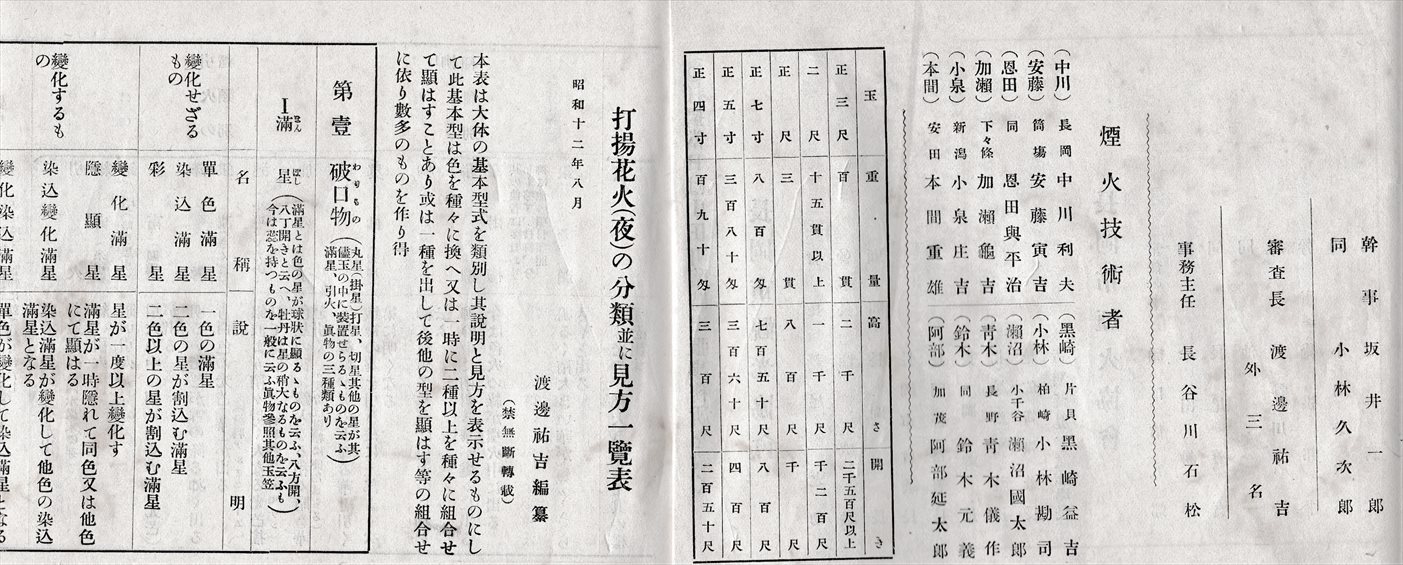 幹事 坂井一郎
同 小林久次郎
審査長 渡邊祐吉
外三名
事務主任 長谷川石松
煙火技術者
(中川) 長岡 中川利夫 (黒崎) 片貝 黒崎益吉
(安藤) 筒場 安藤寅吉 (小林) 柏崎 小林勘司
(恩田) 同 恩田與平治 (瀬沼) 小千谷 瀬沼國太郎
(加瀬) 下々條 加瀬龜吉 (青木) 長野 青木儀作
(小泉) 新潟 小泉庄吉 (鈴木) 同 鈴木元義
(本間) 安田 本間重雄 (阿部) 加茂 阿部延太郎
玉 重量 高さ 開き
正三尺 百貫 二千尺 二千五百尺以上
二尺 十五貫以上 一千尺 千二百尺
正尺 三貫 八百尺 千尺
正七寸 八百匁 七百五十尺 八百尺
正五寸 三百八十匁 三百六十尺 四百尺
正四寸 百九十匁 三百尺 二百五十尺
打揚花火(夜)の分類並に見方一覽表
昭和十二年八月 渡邊祐吉編纂
(禁無斷轉載)
本表は大体の基本型式を類別し其說明と見方を表示せるものにし
て此基本型は色を種々に換へ又は一時に二種以上を種々に組合せ
て顯はすことあり或は一種を出して後他の型を顯はす等の組合せ
に依り數多のものを作り得
第壹 破口物(わりもの) (丸星(掛星)打星、切星其他の星が其
儘玉の中に裝置せらるゝものを云ふ
滿星、引火、眞物の三種類あり)
I 滿星 (滿星とは色の星が球狀に顯るゝものを云ふ、八方開、
八丁開きと云へ、牡丹は星の稍大なるものを云ふも
今は蕊を持つものを一般に云ふ眞物參照其他玉笠)
名稱 說明
變化せざるもの
單色滿星 一色の滿星
染込滿星 二色の星が割込む滿星
彩星 二色以上の星が割込む滿星
變化するもの
變化滿星 星が一度以上變化す
隱顯星 滿星が一時隱れて同色又は他色
にて顯はる
染込變化滿星 染込滿星が變化して他色の染込
滿星となる
變化染込滿星 單色が變化して染込滿星となる